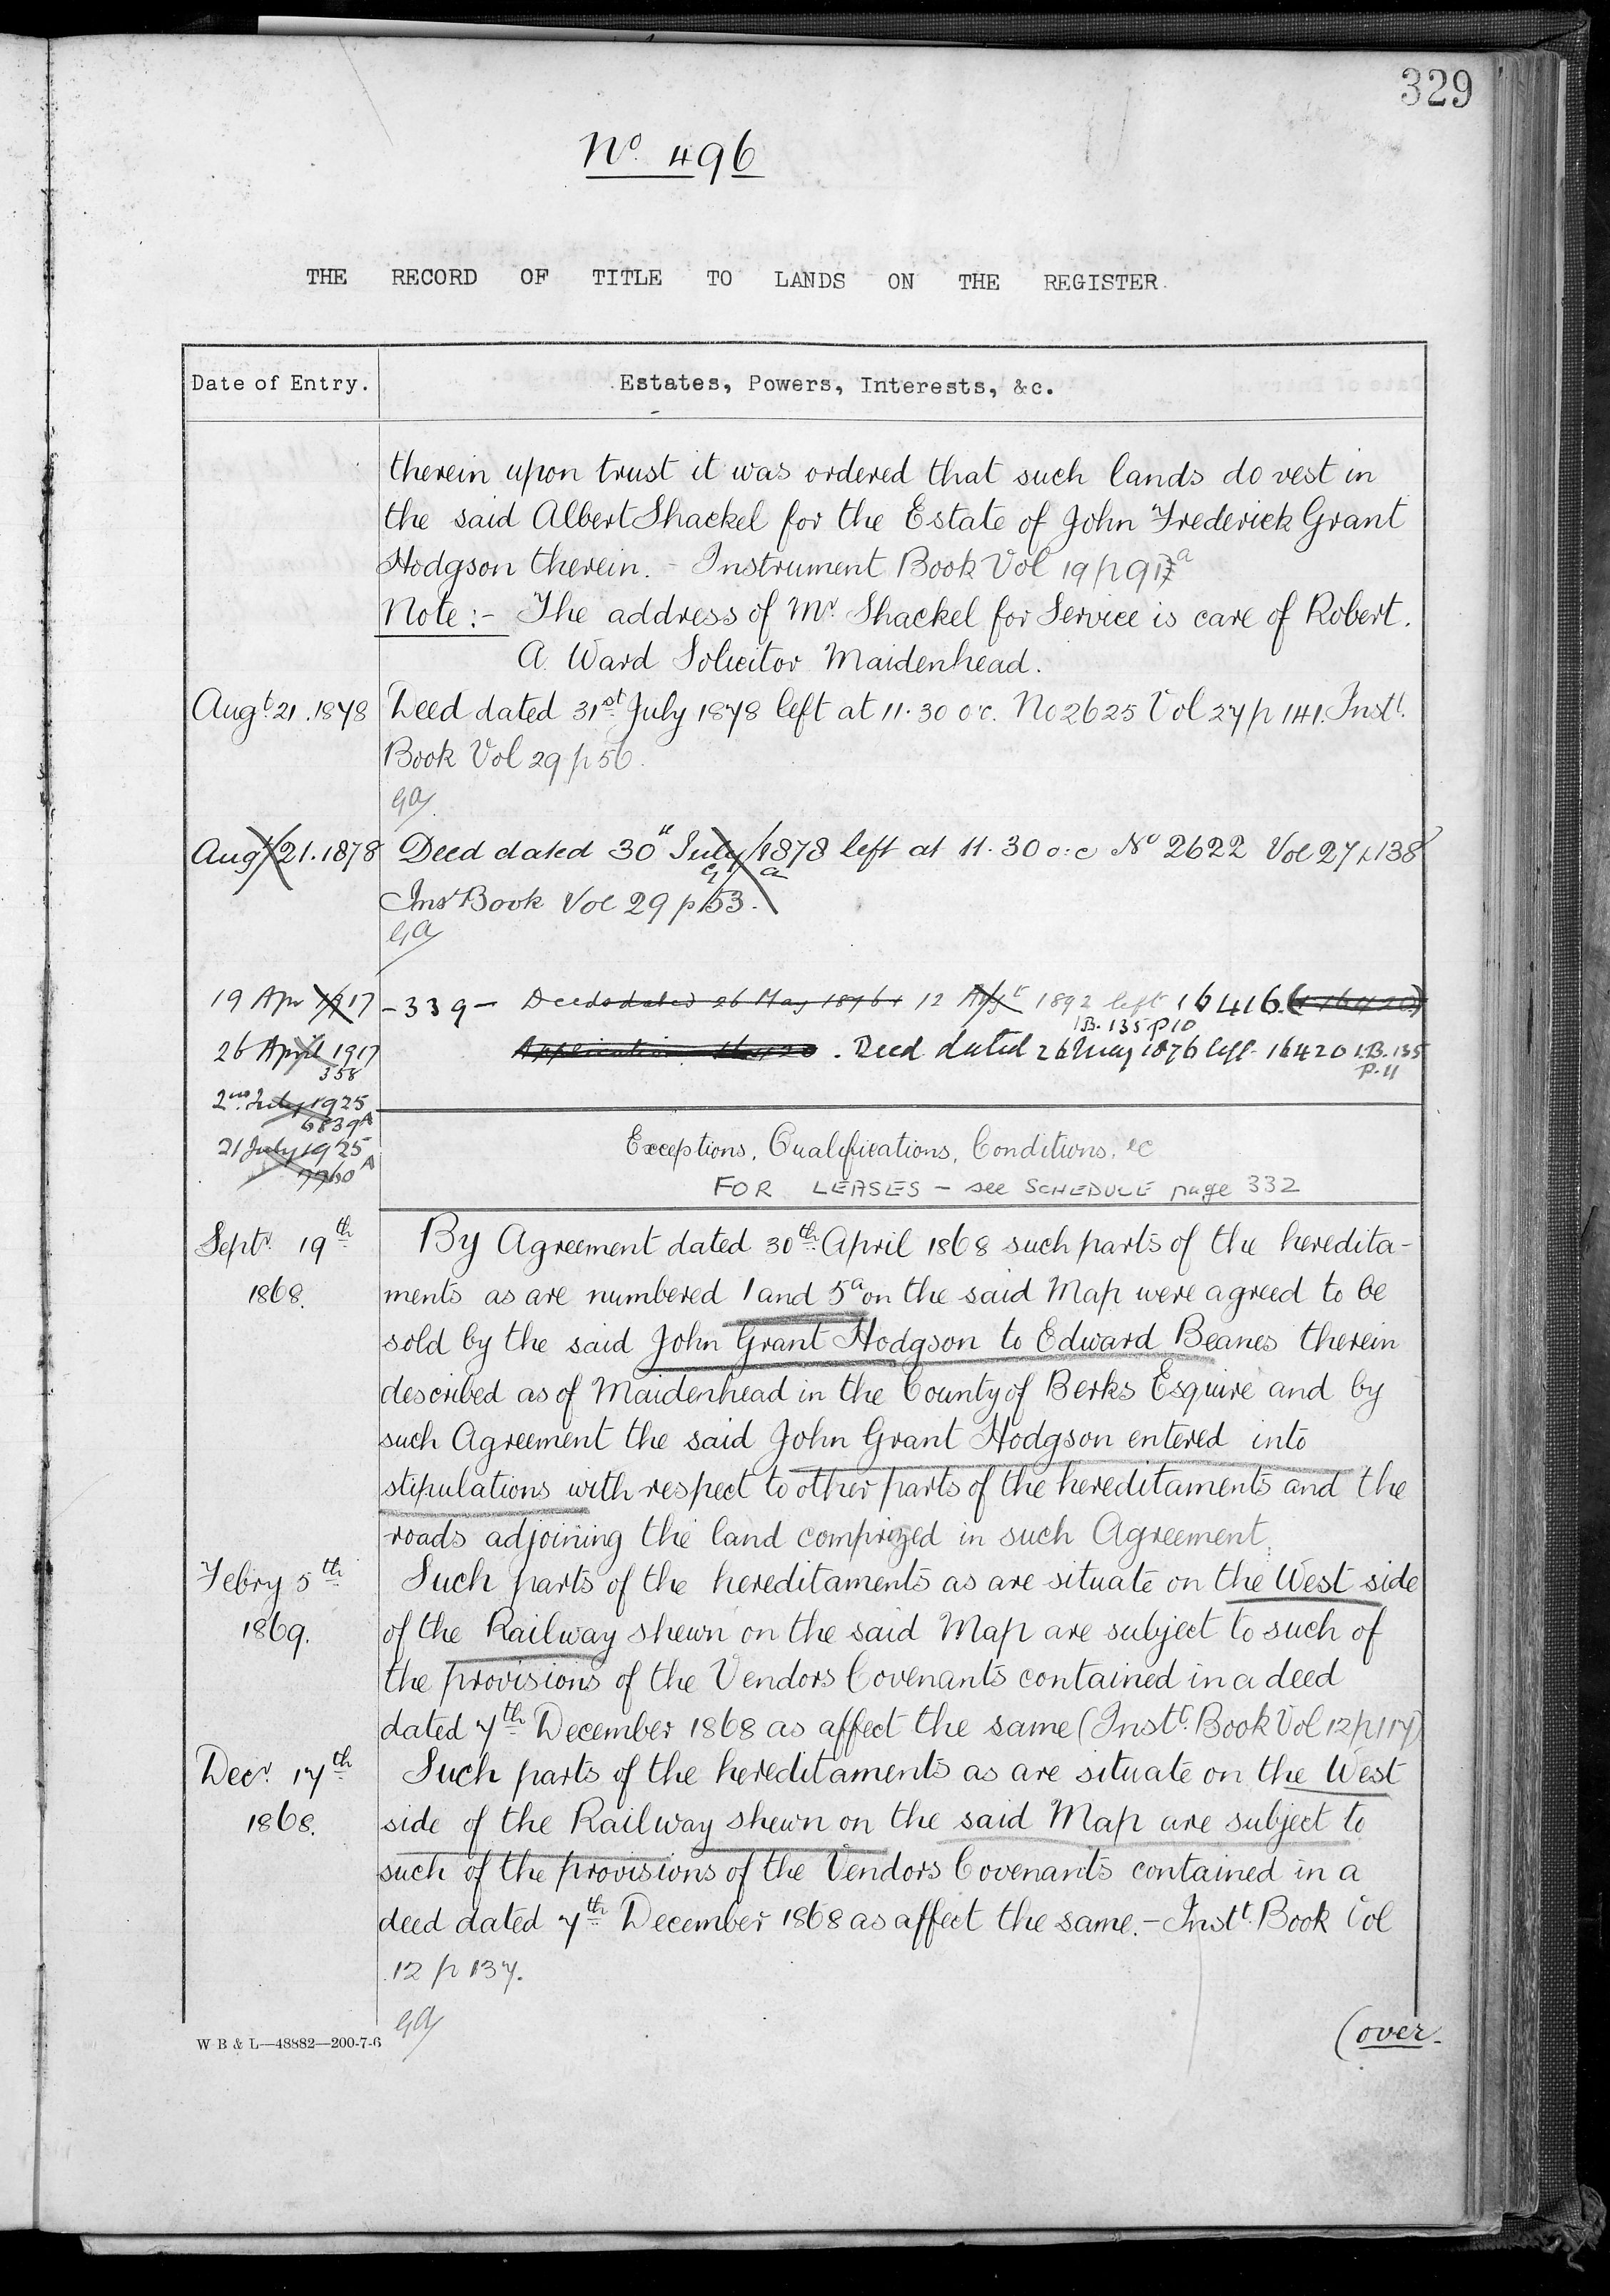 329
No. 496
THE RECORD OF TITLE TO LANDS ON THE REGISTER.
Date of Entry. Estates, Powers, Interests, &c.
therein upon trust it was ordered that such lands do vest in
the said Albert Shackel for the Estate of John Frederick Grant
Hodgson therein. - Instrument Book Vol 19 p 91a
Note:- The address of Mr. Shackel for Service is care of Robert.
A. Ward Solicitor Maidenhead.
Augt. 21. 1878 Deed dated 31st July 1878 left at 11.30 o'c. No 2625 Vol 27 p 141. Instt.
Book Vol 29 p 56.
GA
Augt 21. 1878 Deed dated 30th July 1878 left at 11.30 o:c No 2622 Vol 27 p 138
Inst Book Vol 29 p 153.
GA
19 Apr 1917 - 339 - Deeds dated 26 May 1876 + 12 Augt 1892 left 16416. (+ 16420)
I.B. 135 p 10
26 April 1917 Application 16420. Deed dated 26 May 1876 left 16420 I.B. 135
358 P. 11
2nd July 1925
6839A
21 July 1925
7760A
Exceptions, Qualifications, Conditions, &c
FOR LEASES - see SCHEDULE page 332
Septr. 19th By Agreement dated 30th April 1868 such parts of the heredita-
1868. ments as are numbered 1 and 5a on the said Map were agreed to be
sold by the said John Grant Hodgson to Edward Beanes therein
described as of Maidenhead in the County of Berks Esquire and by
such Agreement the said John Grant Hodgson entered into
stipulations with respect to other parts of the hereditaments and the
roads adjoining the land comprized in such Agreement.
Febry 5th Such parts of the hereditaments as are situate on the West side
1869. of the Railway shewn on the said Map are subject to such of
the provisions of the Vendors Covenants contained in a deed
dated 7th December 1868 as affect the same (Instt. Book Vol 12 p 117)
Decr. 17th Such parts of the hereditaments as are situate on the West
1868. side of the Railway shewn on the said Map are subject to
such of the provisions of the Vendors Covenants contained in a
deed dated 7th December 1868 as affect the same. - Instt. Book Vol
12 p 137.
GA
W B & L—48882—200-7-6
(over-